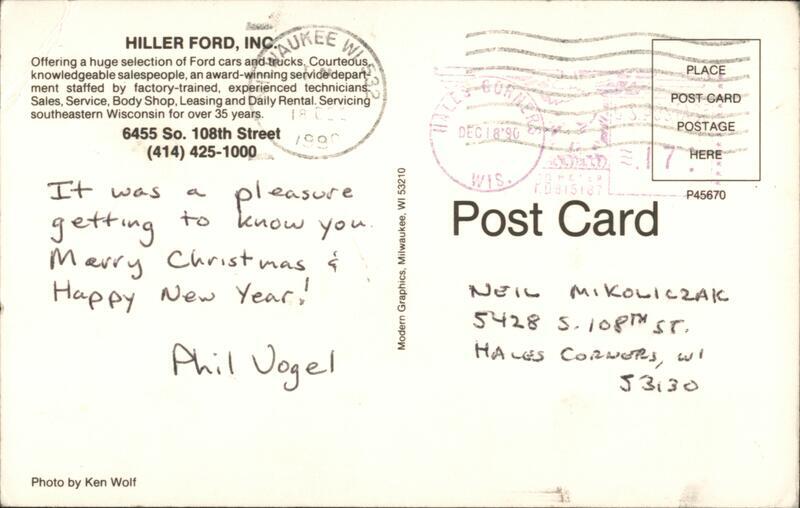 HILLER FORD, INC.
Offering a huge selection of Ford cars and trucks. Courteous,
knowledgeable salespeople, an award-winning service depart-
ment staffed by factory-trained, experienced technicians.
Sales, Service, Body Shop, Leasing and Daily Rental. Servicing
southeastern Wisconsin for over 35 years.
6455 So. 108th Street
(414) 425-1000
It was a pleasure
getting to know you.
Merry Christmas &
Happy New Year!
Phil Vogel
Photo by Ken Wolf
Modern Graphics, Milwaukee, WI 53210
MILWAUKEE WI 532
18
1990
HALES CORNERS
DEC 18 '90
WIS.
U.S. POSTAGE
.17
PLACE
POST CARD
POSTAGE
HERE
P45670
Post Card
NEIL MIKOLICZAK
5428 S. 108TH ST.
HALES CORNERS, WI
53130